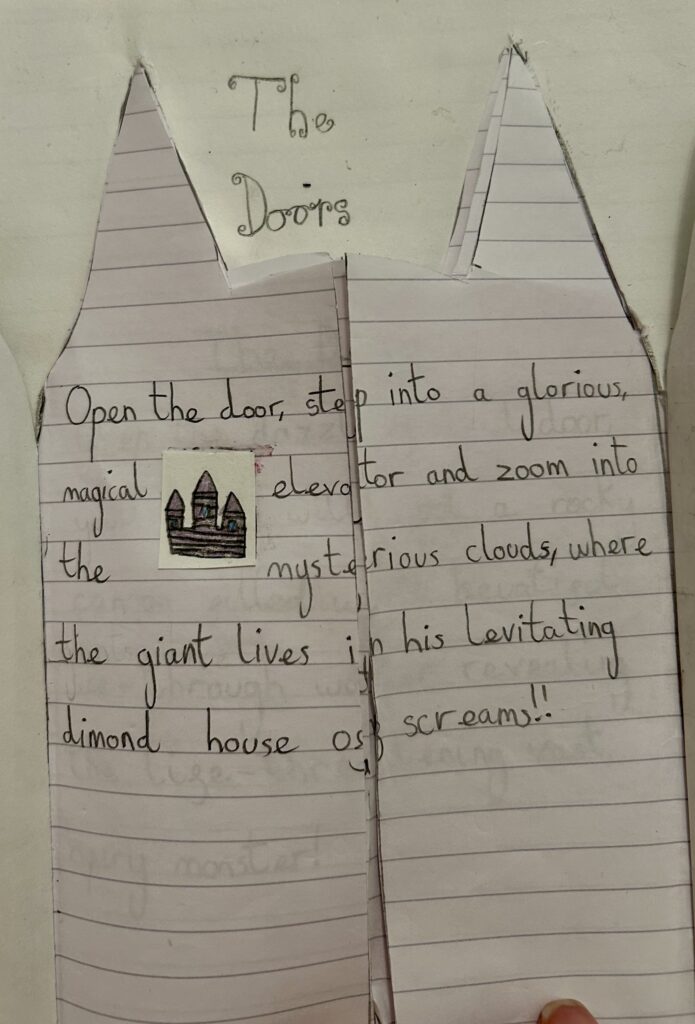 The
Doors
Open the door, step into a glorious,
magical elevator and zoom into
the mysterious clouds, where
the giant lives in his levitating
dimond house of screams!!